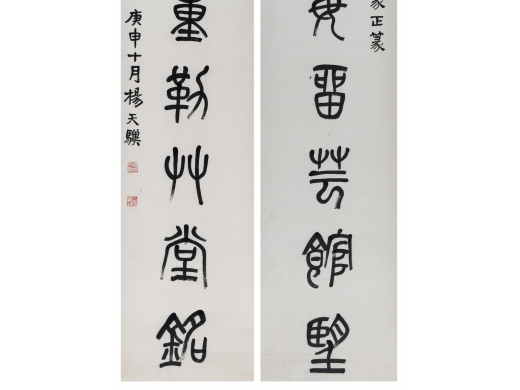 家正篆
留芸館
重勒艸堂銘
庚申十月楊天驥